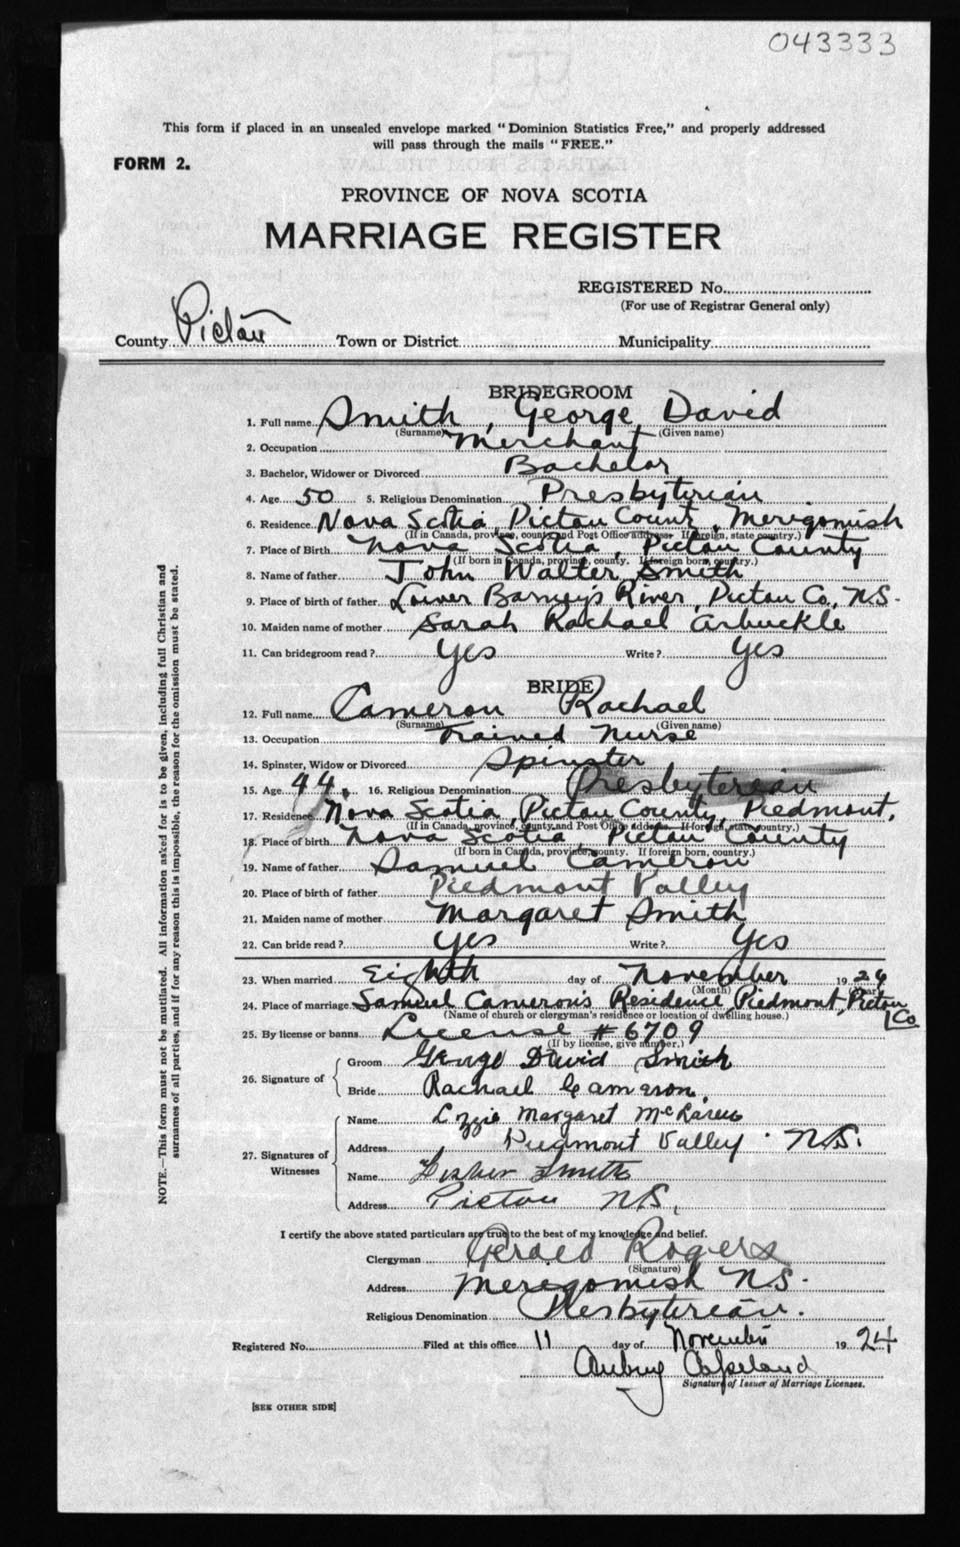 043333
This form if placed in an unsealed envelope marked "Dominion Statistics Free," and properly addressed
will pass through the mails "FREE."
FORM 2.
PROVINCE OF NOVA SCOTIA
MARRIAGE REGISTER
REGISTERED No.
(For use of Registrar General only)
County Pictou Town or District Municipality
BRIDEGROOM
1. Full name Smith, George David
(Surname) (Given name)
2. Occupation Merchant
3. Bachelor, Widower or Divorced Bachelor
4. Age 50 5. Religious Denomination Presbyterian
6. Residence Nova Scotia, Pictou Count, Merigomish
(If in Canada, province, county and Post Office address. If foreign, state country.)
7. Place of Birth Nova Scotia, Pictou County
(If born in Canada, province, county. If foreign born, country.)
8. Name of father John Walter Smith
9. Place of birth of father Lower Barney's River, Pictou Co, N.S.
10. Maiden name of mother Sarah Rachael Arbuckle
11. Can bridegroom read? Yes Write? Yes
BRIDE
12. Full name Cameron Rachael
(Surname) (Given name)
13. Occupation Trained Nurse
14. Spinster, Widow or Divorced Spinster
15. Age 44. 16. Religious Denomination Presbyterean
17. Residence Nova Scotia, Pictou County, Piedmont.
(If in Canada, province, county and Post Office address. If foreign, state country.)
18. Place of birth Nova Scotia Pictou County
(If born in Canada, province, county. If foreign born, country.)
19. Name of father Samuel Cameron
20. Place of birth of father Piedmont Valley
21. Maiden name of mother Margaret Smith
22. Can bride read? Yes Write? Yes
23. When married Eighth day of November 19
(Month) (Year)
24. Place of marriage Samuel Cameron's Residence Piedmont, Pictou Co
(Name of church or clergyman's residence or location of dwelling house.)
25. By license or banns License #6709
(If by license, give number.)
26. Signature of
Groom George David Smith
Bride Rachael Cameron.
27. Signatures of Witnesses
Name Lizzie Margaret
Address Piedmont Valley. N.S.
Name Smith
Address Pictou N.S.
I certify the above stated particulars are true to the best of my knowledge and belief.
Clergyman Gerald Rogers
(Signature)
Address Merigomish N.S.
Religious Denomination Presbyterean.
Registered No. Filed at this office 11 day of November 19 24
Aubrey Copeland
Signature of Issuer of Marriage Licenses.
[SEE OTHER SIDE]
NOTE.—This form must not be mutilated. All information asked for is to be given, including full Christian and
surnames of all parties, and if for any reason this is impossible, the reason for the omission must be stated.